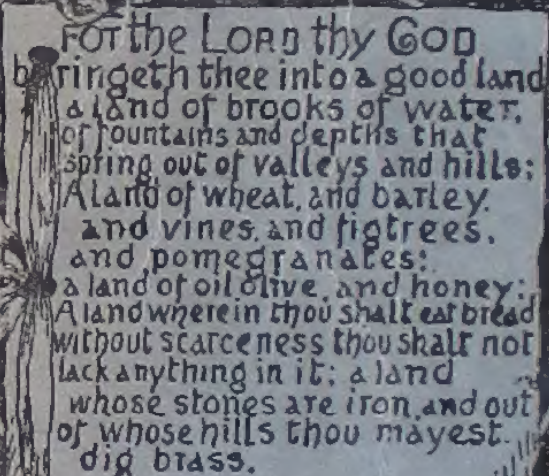 FOT the LORD thy GOD
bringeth thee into a good land
a land of brooks of water,
of fountains and depths that
spring out of valleys and hills;
A land of wheat, and barley,
and vines, and figtrees,
and pomegranates;
a land of oil olive, and honey;
A land wherein thou shalt eat bread
without scarceness thou shalt not
lack anything in it; a land
whose stones are iron, and out
of whose hills thou mayest
dig brass.